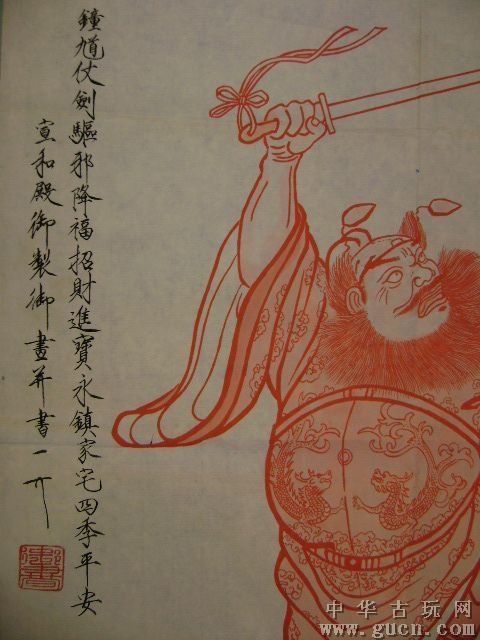 鐘馗仗劍驅邪降福招財進寶永鎮家宅四季平安
宣和殿御製御畫并書
中华古玩网
www.gucn.com